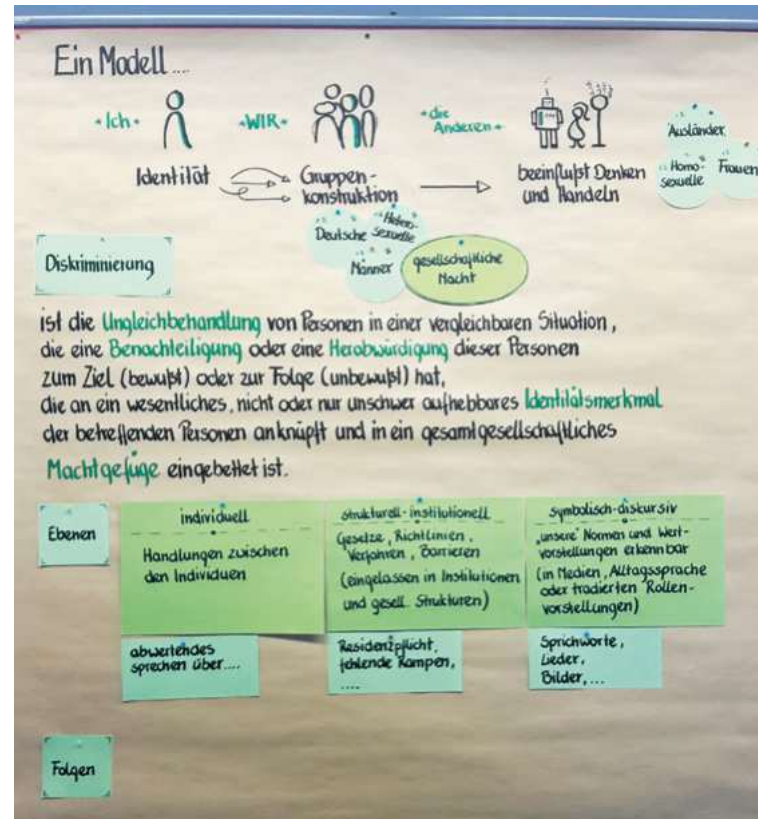 Ein Modell....
•Ich•
•WIR•
•die
Anderen•
Ausländer
Homo-
sexuelle
Frauen
Identität
Gruppen-
konstruktion
beeinflußt Denken
und Handeln
Deutsche
Hetero-
sexuelle
Männer
gesellschaftliche
Macht
Diskriminierung
ist die Ungleichbehandlung von Personen in einer vergleichbaren Situation,
die eine Benachteiligung oder eine Herabwürdigung dieser Personen
zum Ziel (bewußt) oder zur Folge (unbewußt) hat,
die an ein wesentliches, nicht oder nur unschwer aufhebbares Identitätsmerkmal
der betreffenden Personen anknüpft und in ein gesamtgesellschaftliches
Machtgefüge eingebettet ist.
Ebenen
individuell
Handlungen zwischen
den Individuen
strukturell-institutionell
Gesetze, Richtlinien,
Verfahren, Barrieren
(eingelassen in Institutionen
und gesell. Strukturen)
symbolisch-diskursiv
„unsere" Normen und Wert-
vorstellungen erkennbar
(in Medien, Alltagssprache
oder tradierten Rollen-
vorstellungen)
abwertendes
sprechen über....
Residenzpflicht,
fehlende Rampen,
....
Sprichworte,
Lieder,
Bilder,...
Folgen